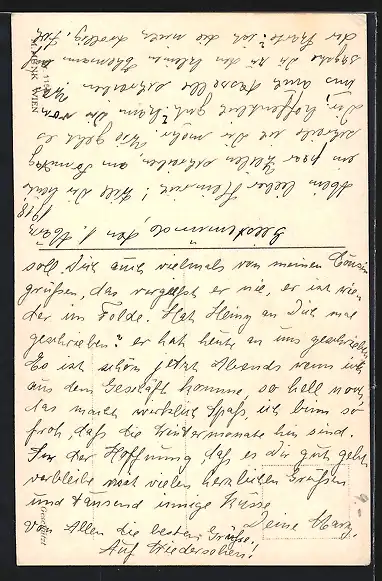 Geestemünde, den 1. März
1918
Mein lieber Heinrich! Will Dir heute
ein paar Zeilen schreiben, am Sonntag
schreibe ich Dir mehr. Wie geht es
Dir, hoffentlich gut, kann Dir von
uns auch dasselbe schreiben.
sagst Du zu den kleinen Ehemann auf
der Karte? ich die
soll Dich auch vielmals von meinen Cousin
grüßen, das vergißt er nie, er ist wie-
der im Felde. Hat Heinz an Dich mal
geschrieben? er hat heute an uns geschrieben
Es ist schön jetzt Abends wenn ich
aus dem Geschäft komme, so hell noch,
das macht wirklich Spaß, ich bin so
froh, daß die Wintermonate hin sind.
In der Hoffnung daß es Dir gut geht
verbleibe mit vielen herzlichen Grüßen
und tausend innige Küsse
Deine Mary.
Von Allen die besten Grüße!
Auf Wiedersehen!
M. MUNK WIEN